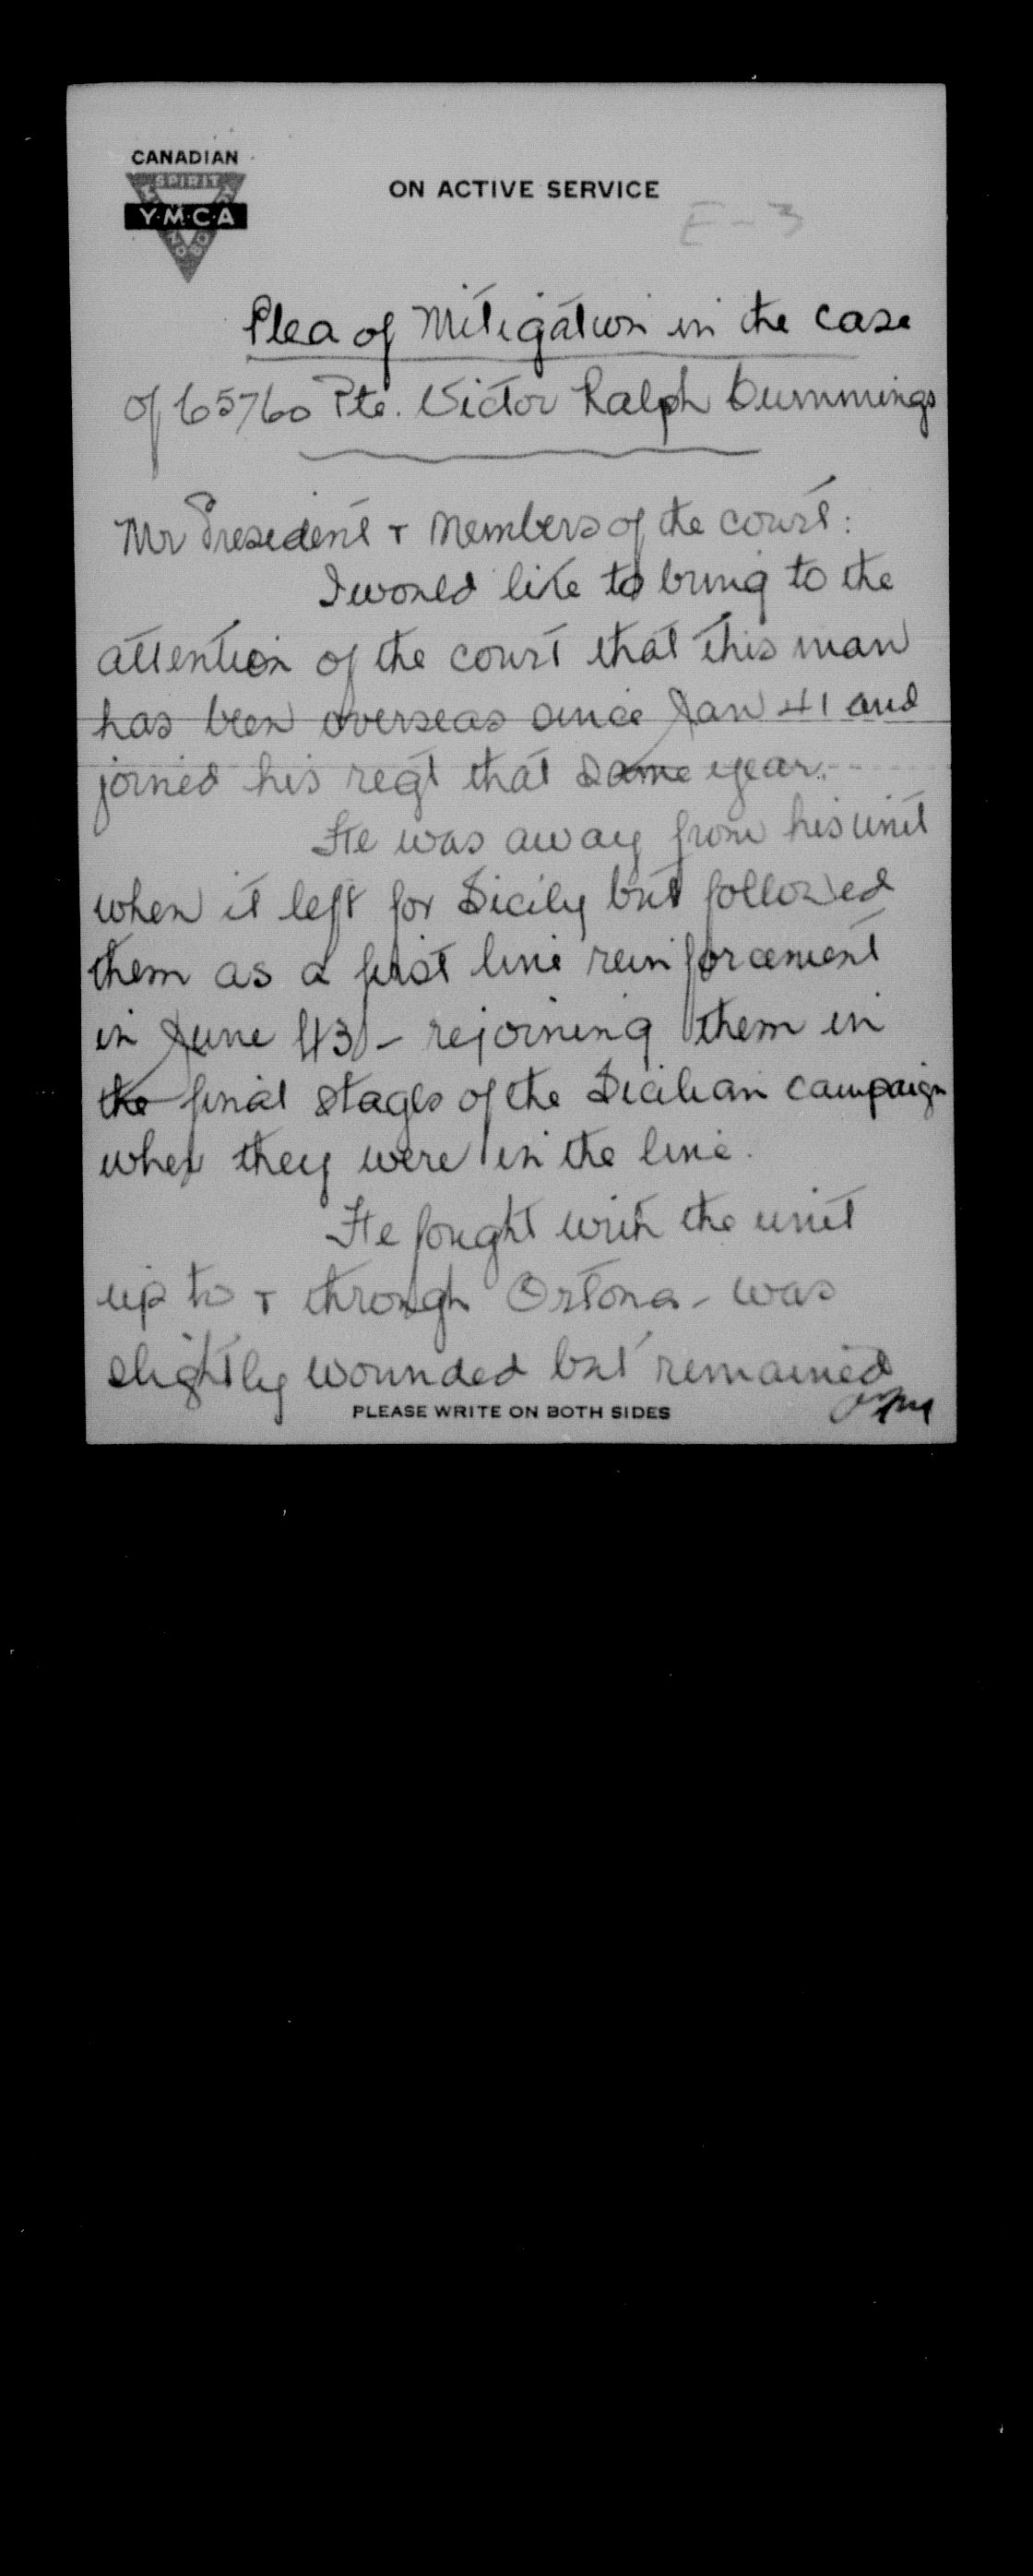 CANADIAN
SPIRIT
Y·M·C·A
ON ACTIVE SERVICE
E-3
Plea of Mitigation in the case
of 65760 Pte. Victor Ralph Cummings
Mr President + Members of the court:
I would like to bring to the
attention of the court that this man
has been overseas since Jan 41 and
joined his regt that same year.
He was away from his unit
when it left for Sicily but followed
them as a first line reinforcement
in June 43 - rejoining them in
the final stages of the Sicilian campaign
when they were in the line.
He fought with the unit
up to + through Ortona - was
slightly wounded but remained
PLEASE WRITE ON BOTH SIDES